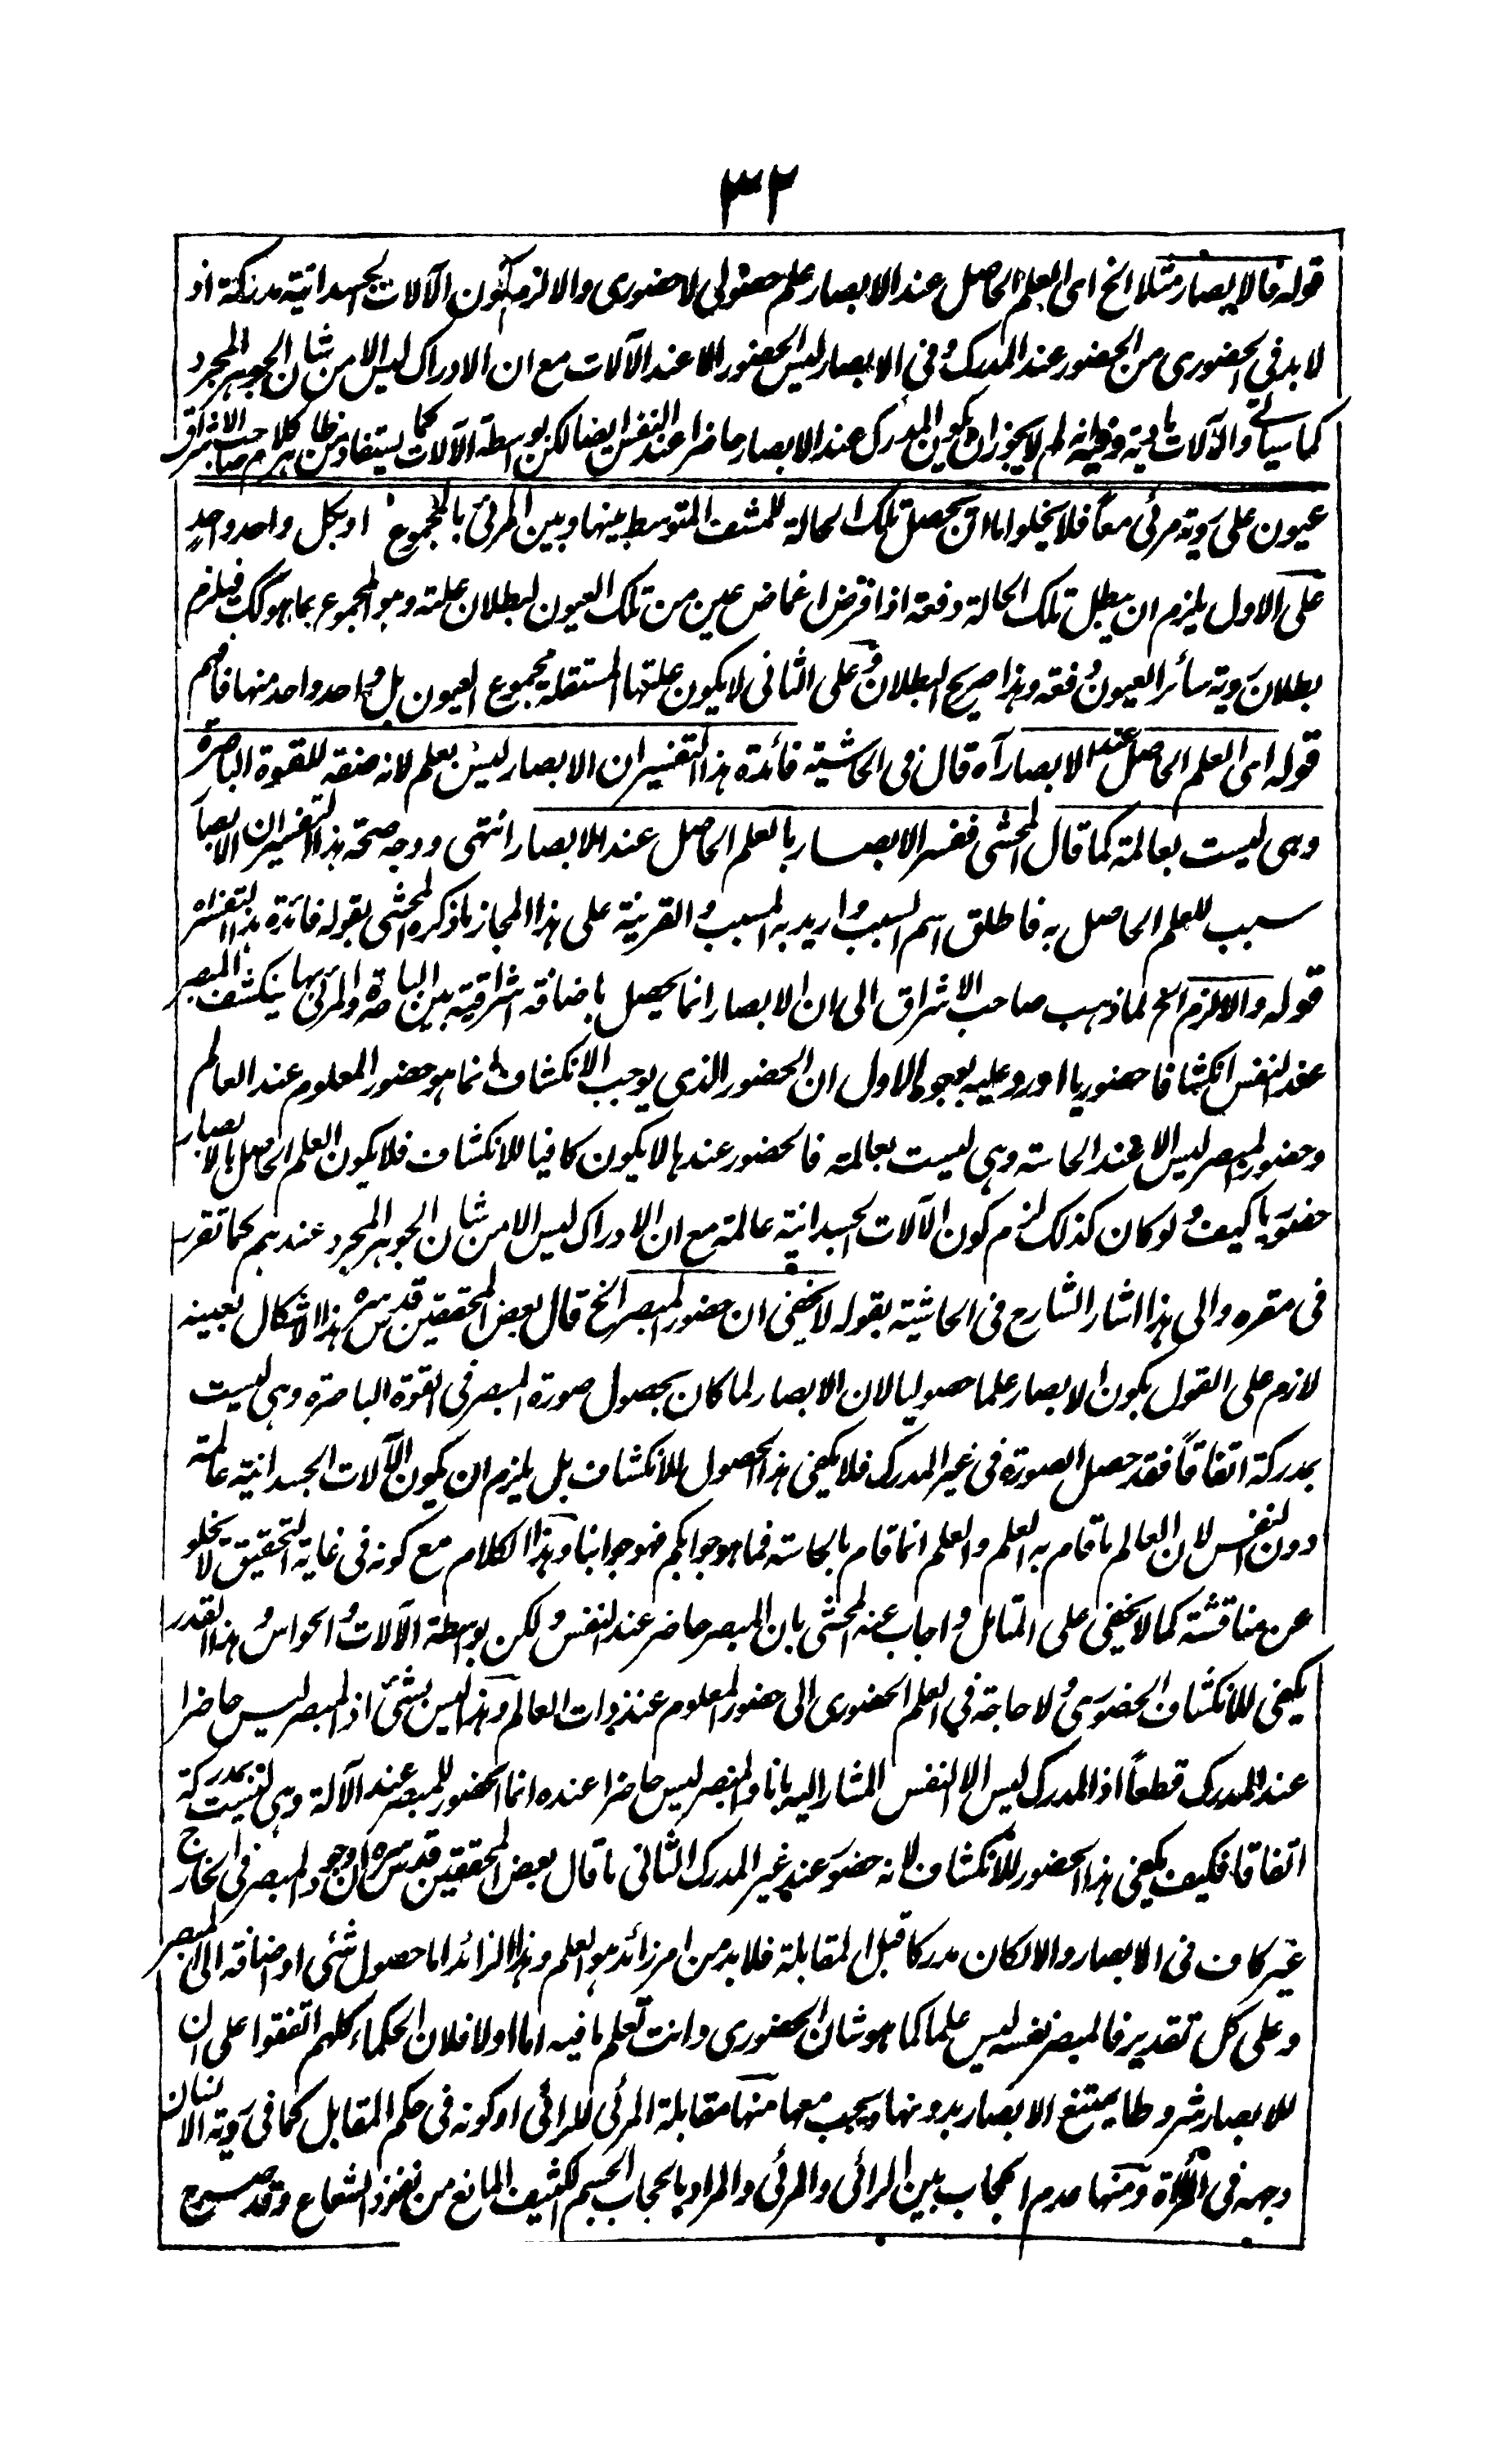 ٣٢
قوله فالابصار مثلا الخ اى العلم الحاصل عند الابصار علم حصولى لا حضورى والا لزم كون الآلات الجسدانية مدركة اذ
لا بد فى الحضورى من الحضور عند المدرك وفى الابصار ليس الحضور الا عند الآلات مع ان الادراك ليس الا من شان الجوهر المجرد
كما سياتى والآلات مادية وفيه انه لم لا يجوز ان يكون المدرك عند الابصار حاضرا عند النفس ايضا لكن بواسطة الآلات كما يستفاد من ظاهر كلام صاحب الاشراق
عيون على رؤية مرئى معا فلا يخلو اما ان تحصل تلك الحالة للمشف المتوسط بينها وبين المرئى بالمجموع او بكل واحد واحد
على الاول يلزم ان يبطل تلك الحالة دفعة اذا فرض اغماض عين من تلك العيون لبطلان علته وهو المجموع بما هو كك فيلزم
بطلان رؤية سائر العيون دفعة وهذا صريح البطلان وعلى الثانى لا يكون علتها المستقلة مجموع العيون بل واحد واحد منها فافهم
قوله اى العلم الحاصل عند الابصار آه قال فى الحاشية فائدة هذا التفسير ان الابصار ليس بعلم لانه صفة للقوة الباصرة
وهى ليست بعالمة كما قال المحشى ففسر الابصار بالعلم الحاصل عند الابصار انتهى ووجه صحة هذا التفسير ان الابصار
سبب للعلم الحاصل به فاطلق اسم السبب واريد به المسبب والقرينة على هذا المجاز ما ذكره المحشى بقوله فائدة هذا التفسير آه
قوله والا لزم الخ لما ذهب صاحب الاشراق الى ان الابصار انما يحصل باضافة اشراقية بين الباصرة والمرئى بها ينكشف المبصر
عند النفس انكشافا حضوريا اورد عليه بوجوه الاول ان الحضور الذى يوجب الانكشاف انما هو حضور المعلوم عند العالم
وحضور المبصر ليس الا عند الحاسة وهى ليست بعالمة فالحضور عندها لا يكون كافيا للانكشاف فلا يكون العلم الحاصل بالابصار
حضوريا كيف ولو كان كذلك لزم كون الآلات الجسدانية عالمة مع ان الادراك ليس الا من شان الجوهر المجرد عندهم كما تقرر
فى مقره والى هذا اشار الشارح فى الحاشية بقوله لا يخفى ان حضور المبصر الخ قال بعض المحققين قدس سره هذا الاشكال بعينه
لازم على القول بكون الابصار علما حصوليا لان الابصار لما كان بحصول صورة المبصر فى القوة الباصرة وهى ليست
بمدركة اتفاقاً فقد حصل الصورة فى غير المدرك فلا يكفى هذا الحصول للانكشاف بل يلزم ان يكون الآلات الجسدانية عالمة
دون النفس لان العالم ما قام به العلم والعلم انما قام بالحاسة فما هو جوابكم فهو جوابنا وهذا الكلام مع كونه فى غاية التحقيق لا يخلو
عن مناقشة كما لا يخفى على المتامل واجاب عنه المحشى بان المبصر حاضر عند النفس ولكن بواسطة الآلات والحواس وهذا القدر
يكفى للانكشاف الحضورى ولا حاجة فى العلم الحضورى الى حضور المعلوم عند ذات العالم وهذا ليس بشئ اذ المبصر ليس حاضرا
عند المدرك قطعاً اذ المدرك ليس الا النفس المشار اليه بانا والمبصر ليس حاضرا عنده انما الحضور للمبصر عند الآلة وهى ليست بمدركة
اتفاقا فكيف يكفى هذا الحضور للانكشاف لانه حضور عند غير المدرك الثانى ما قال بعض المحققين قدس سره ان وجود المبصر فى الخارج
غير كاف فى الابصار والا لكان مدركا قبل المقابلة فلا بد من امر زائد هو العلم وهذا الزائد اما حصول شئى او اضافة الى المبصر
وعلى كل تقدير فالمبصر نفسه ليس علما كما هو شان الحضورى وانت تعلم ما فيه اما اولا فلان الحكماء كلهم اتفقوا على ان
للابصار شروطا يمتنع الابصار بدونها ويجب معها منها مقابلة المرئى للرائى او كونه فى حكم المقابل كما فى رؤية الانسان
وجهه فى المرآة ومنها عدم الحجاب بين الرائى والمرئى والمراد بالحجاب الجسم الكثيف المانع من نفوذ الشعاع وقد صرح